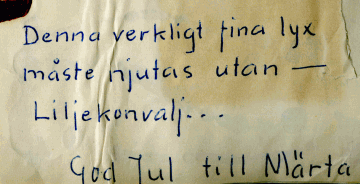 Denna verkligt fina lyx
måste njutas utan —
Liljekonvalj...
God Jul till Märta